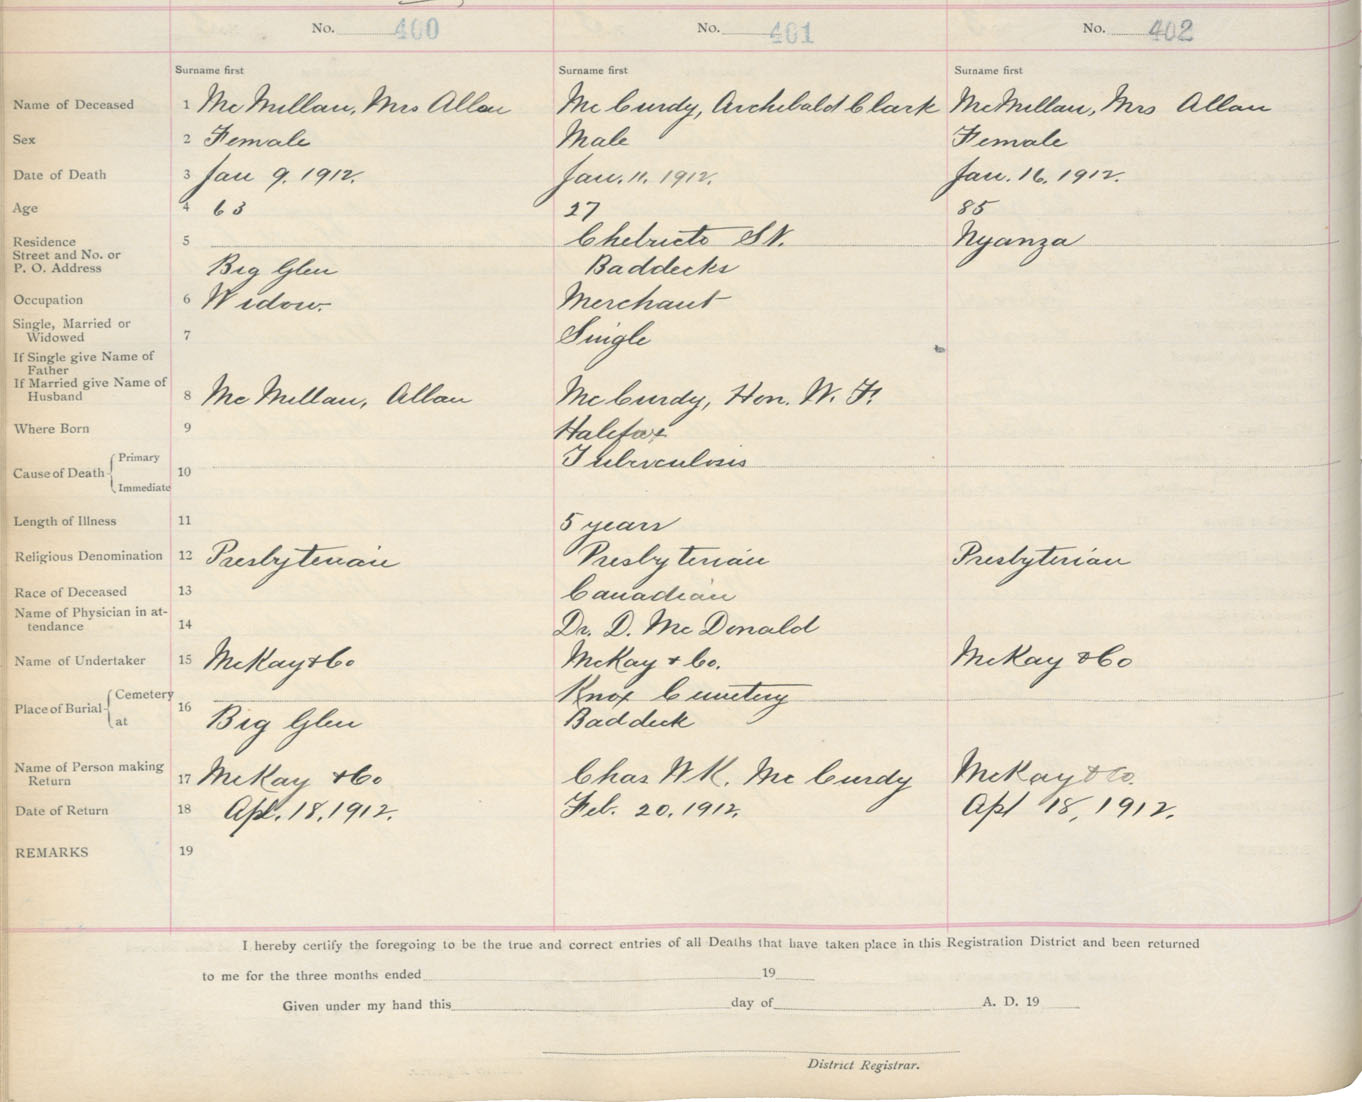 No. 400 No. 401 No. 402
Surname first Surname first Surname first
Name of Deceased 1 McMillan, Mrs Allan McCurdy, Archibald Clark McMillan, Mrs Allan
Sex 2 Female Male Female
Date of Death 3 Jan 9. 1912. Jan. 11. 1912. Jan. 16. 1912.
Age 4 63 27 85
Residence 5 Chebucto St. Nyanza
Street and No. or
P. O. Address Big Glen Baddecks
Occupation 6 Widow. Merchant
Single, Married or
Widowed 7 Single
If Single give Name of
Father
If Married give Name of
Husband 8 McMillan, Allan McCurdy, Hon. W. F.
Where Born 9 Halifax
Cause of Death Primary 10 Tuberculosis
Immediate
Length of Illness 11 5 years
Religious Denomination 12 Presbyterian Presbyterian Presbyterian
Race of Deceased 13 Canadian
Name of Physician in at-
tendance 14 Dr. D. McDonald
Name of Undertaker 15 McKay & Co McKay & Co. McKay & Co
Place of Burial Cemetery 16 Knox Cemetery
at Big Glen Baddeck
Name of Person making
Return 17 McKay & Co Chas W.K. McCurdy McKay & Co.
Date of Return 18 Apl. 18, 1912. Feb. 20, 1912. Apl 18, 1912.
REMARKS 19
I hereby certify the foregoing to be the true and correct entries of all Deaths that have taken place in this Registration District and been returned
to me for the three months ended 19
Given under my hand this day of A. D. 19
District Registrar.